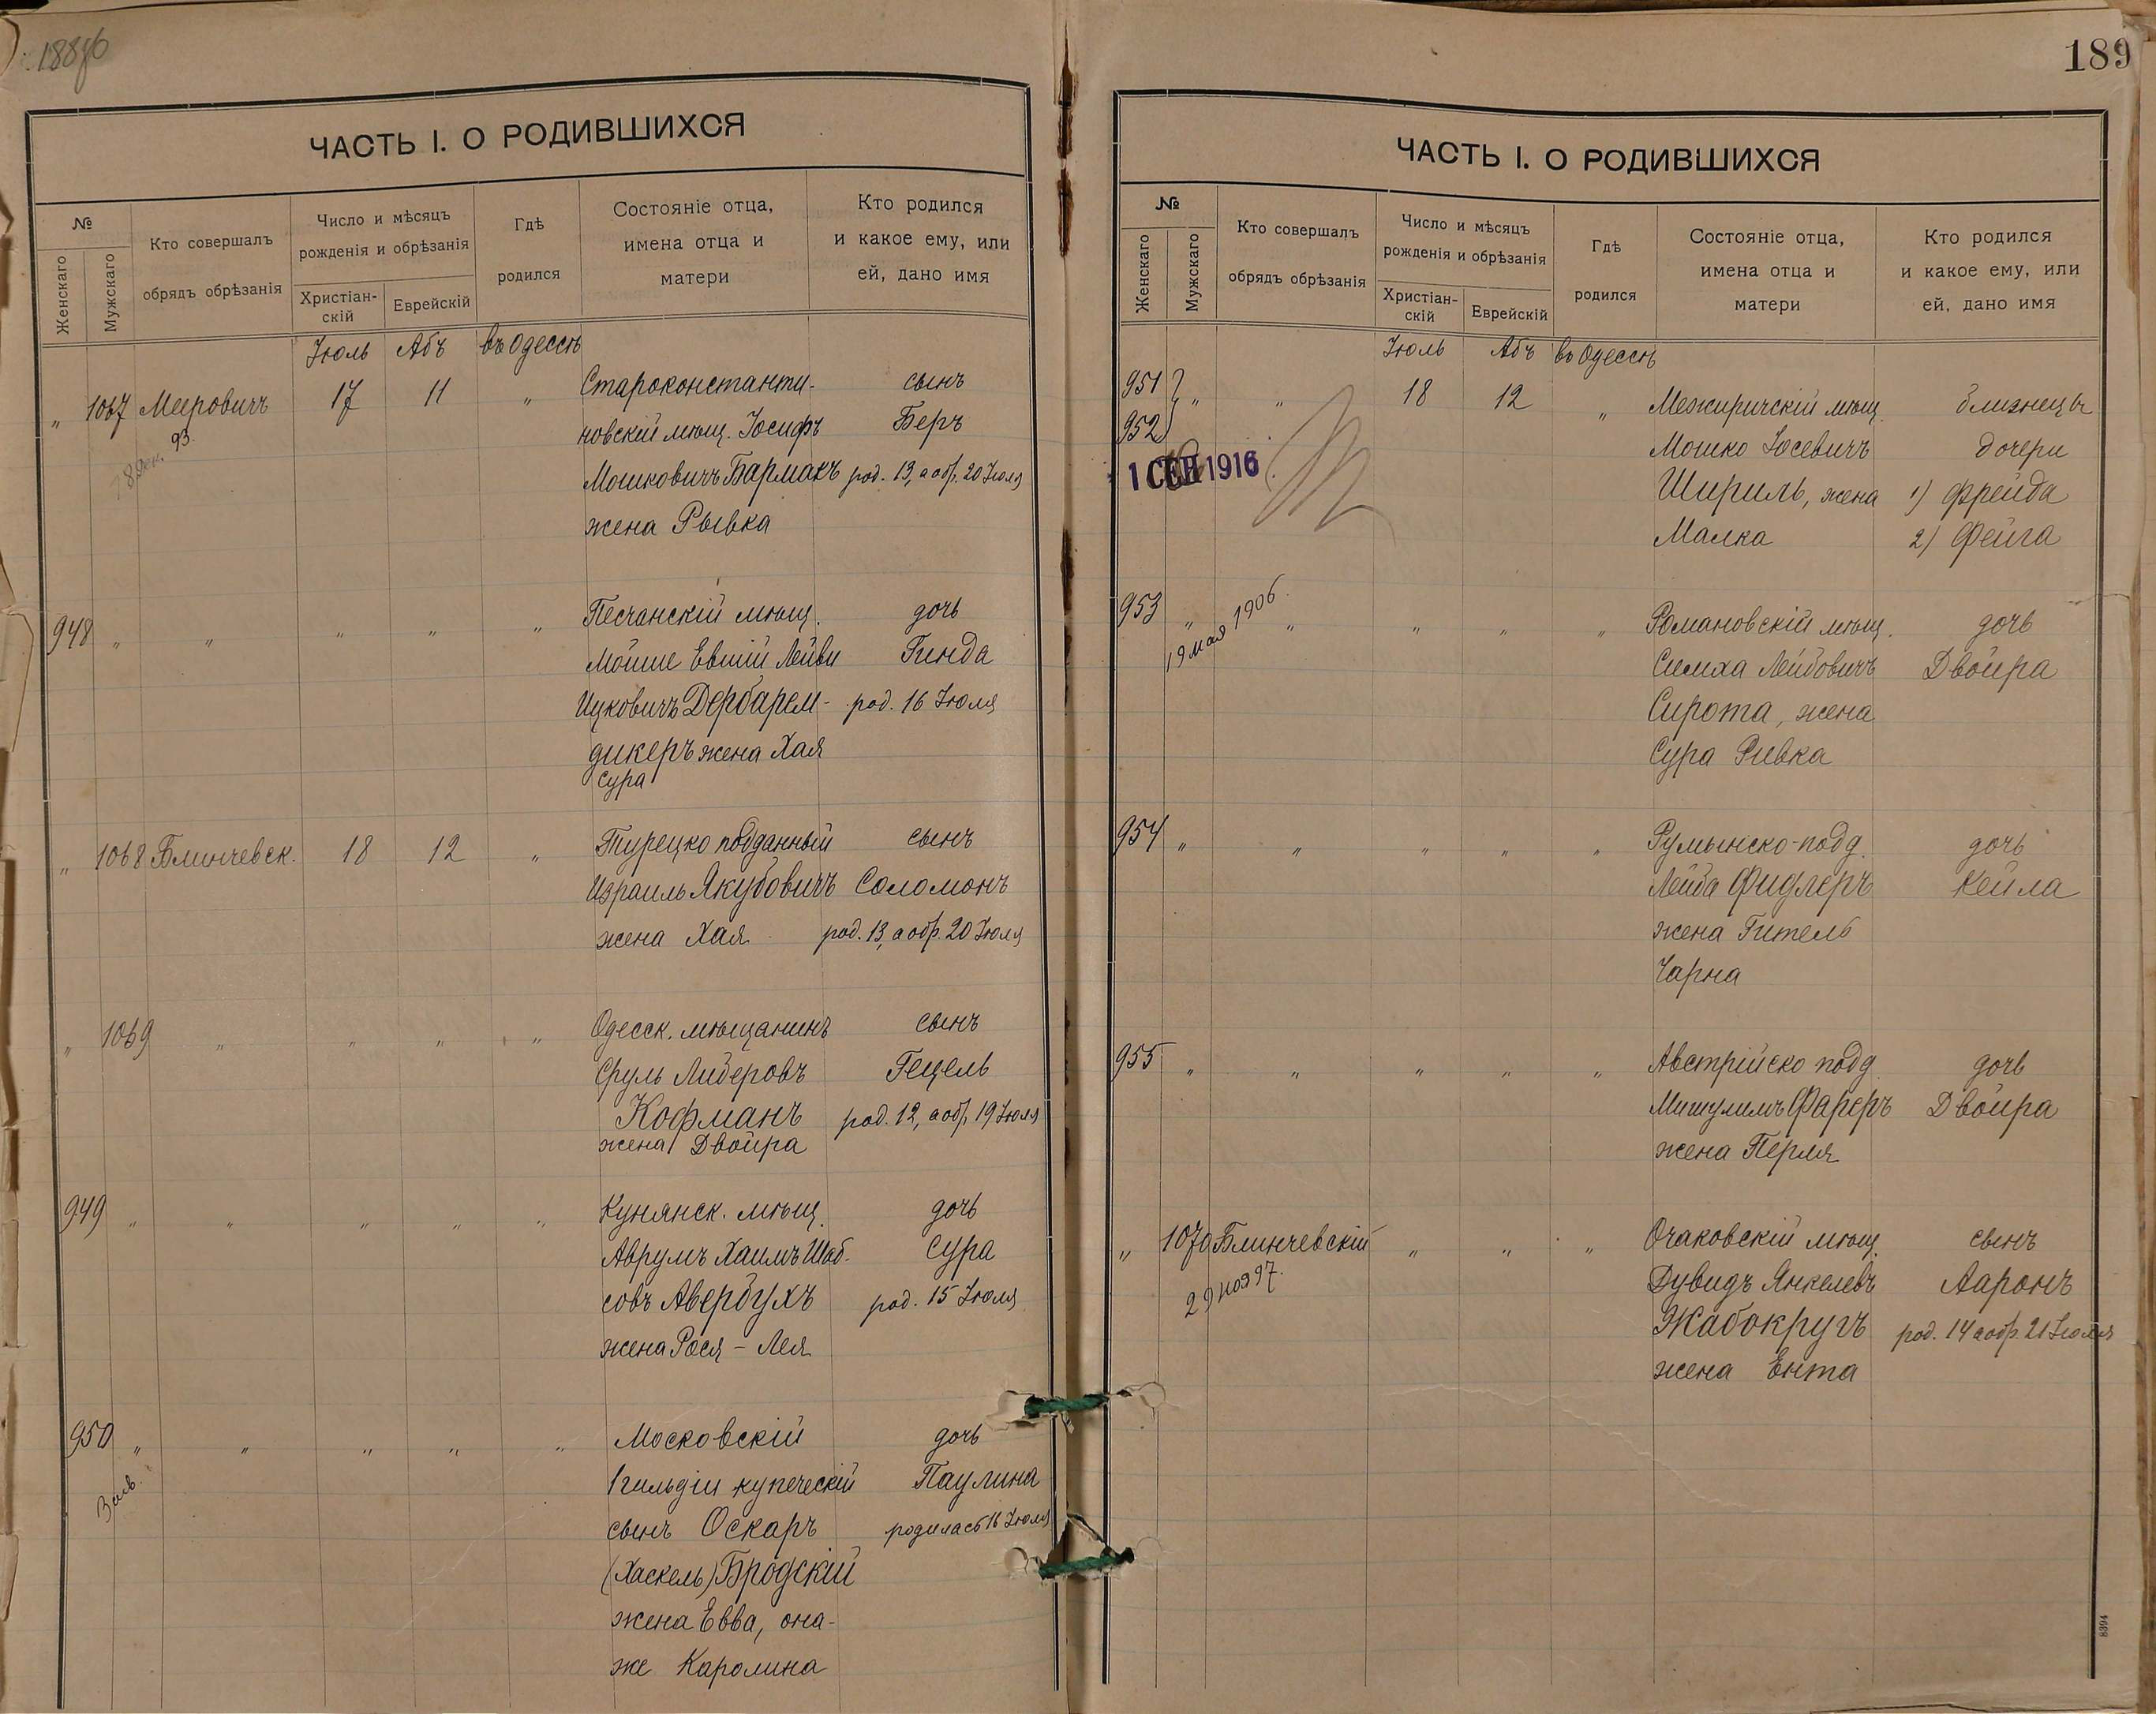 ЧАСТЬ I. О РОДИВШИХСЯ
№
Женскаго
Мужскаго
Кто совершалъ
обрядъ обрѣзанія
Число и мѣсяцъ
рожденія и обрѣзанія
Христіан-
скій
Еврейскій
Гдѣ
родился
Состояніе отца,
имена отца и
матери
Кто родился
и какое ему, или
ей, дано имя
Іюль Абъ въ Одессѣ
„ 1067 Мееровичъ 17 11 „ Староконстанти- сынъ
новскій мѣщ. Іосифъ Беръ
Мошковичъ Бармакъ род. 13, а обр. 20 Іюля
жена Рывка
93.
948 „ „ „ „ „ Песчанскій мѣщ. дочь
Мойше Евшій Лейви Гинда
Ицковичъ Дербарем- род. 16 Іюля
дикеръ жена Хая
Сура
„ 1068 Блинчевск. 18 12 „ Турецко подданный сынъ
Израиль Якубовичъ Соломонъ
жена Хая род. 13, а обр. 20 Іюля
„ 1069 „ „ „ „ Одесск. мѣщанинъ сынъ
Сруль Лидеровъ Гецель
Кофманъ род. 12, а обр. 19 Іюля
жена Двойра
949 „ „ „ „ „ Кунянск. мѣщ. дочь
Аврумъ Хаимъ Шаб- Сура
совъ Авербухъ род. 15 Іюля
жена Рося - Лея
950 „ „ „ „ „ Московскій дочь
1 гильдіи купеческій Паулина
сынъ Оскаръ родилась 16 Іюля
(Хаскель) Бродскій
жена Евва, она-
же Каролина
189
ЧАСТЬ I. О РОДИВШИХСЯ
№
Женскаго
Мужскаго
Кто совершалъ
обрядъ обрѣзанія
Число и мѣсяцъ
рожденія и обрѣзанія
Христіан-
скій
Еврейскій
Гдѣ
родился
Состояніе отца,
имена отца и
матери
Кто родился
и какое ему, или
ей, дано имя
Іюль Абъ въ Одессѣ
951 „ „ 18 12 „ Межиричскій мѣщ. близнецы
952 Мошко Іосевичъ дочери
1 СЕН 1916 Шириль, жена 1) Фрейда
Малка 2) Фейга
953 „ „ „ „ „ Романовскій мѣщ. дочь
19 мая 1906 Симха Лейбовичъ Двойра
Сирота, жена
Сура Ривка
954 „ „ „ „ „ Румынско-подд. дочь
Лейба Фидлеръ Кейла
жена Гитель
Чарна
955 „ „ „ „ „ Австрійско подд. дочь
Мишулимъ Фареръ Двойра
жена Перля
„ 1070 Блинчевскій „ „ „ Очаковскій мѣщ. сынъ
29 ноя 97. Дувидъ Янкелевъ Ааронъ
Жабокругъ род. 14 а обр. 21 Іюля
жена Ента
8394